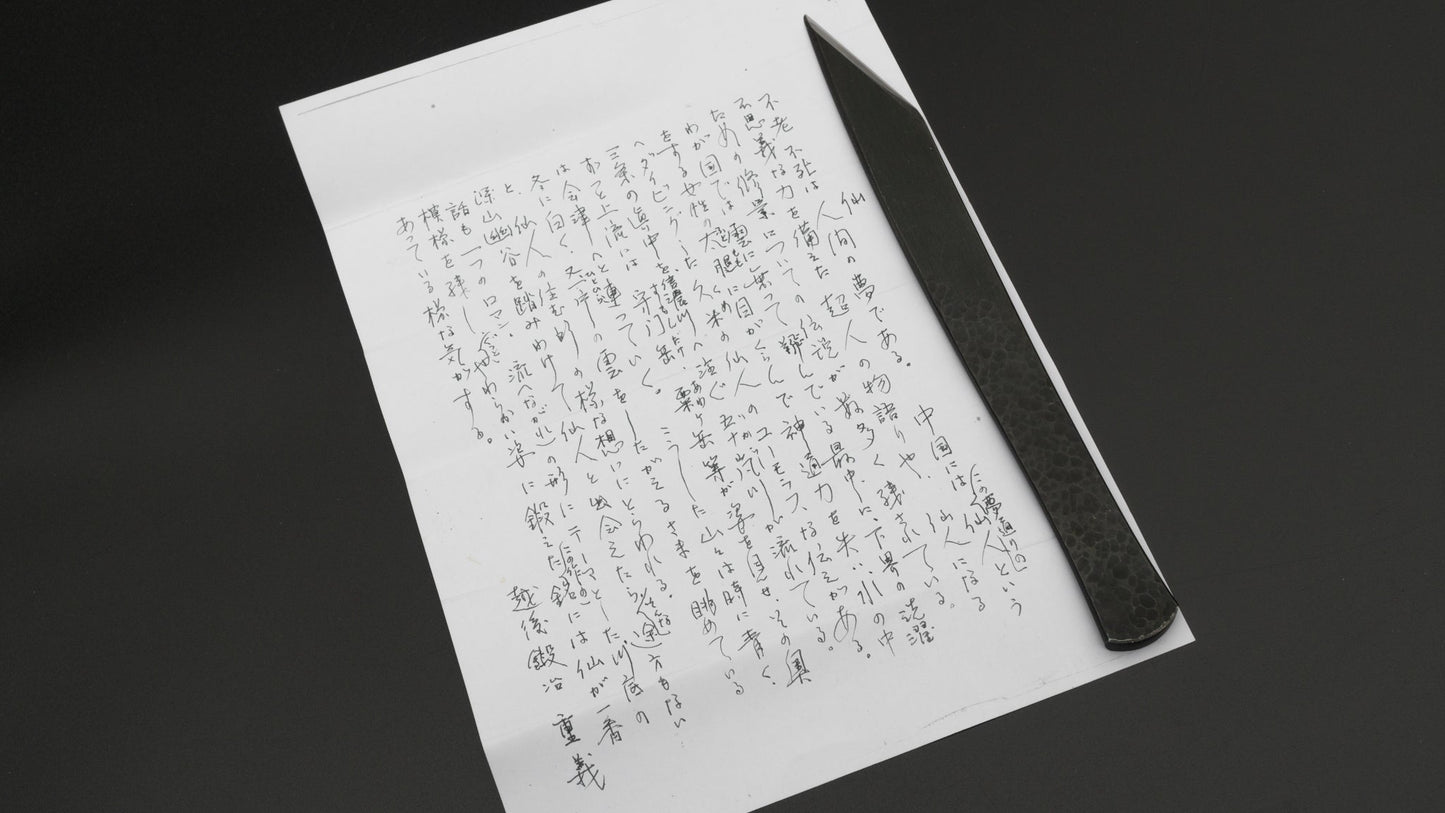 仙
不老不死は人間の夢である。中国には(この夢通りの)仙人という
不思義な力を備えた超人の物語りや、仙人になる
ための修業についての伝説が数多く残されている。
わが国では雲に乗って翔んでいる最中に、下界の洗濯
をする女性の太腿に目がくらんで神通力を失い水の中
へダイビングした久米の仙人のユーモラスな伝えがある。
三条の眞中を信濃川へ注ぐ五十嵐川が流れている。
ずっと上流には守門岳、粟ヶ岳等が姿を見せ、その奥
は会津へと連っていく。こうした山々は時に青く、
冬に白く、又一片の雲をしたがえるさまを眺めている
と、仙人の住む所の様な想いにとらわれる。
深山幽谷を踏みわけて仙人と出会えたら(そんな)途方もない
話も一つのロマン。流(ながれ)の形にテーマとした川底の
模様を残しやわらかい姿に鍛えた(この作の)銘には仙が一番
あっている様な気がする。
越後鍛冶 重義